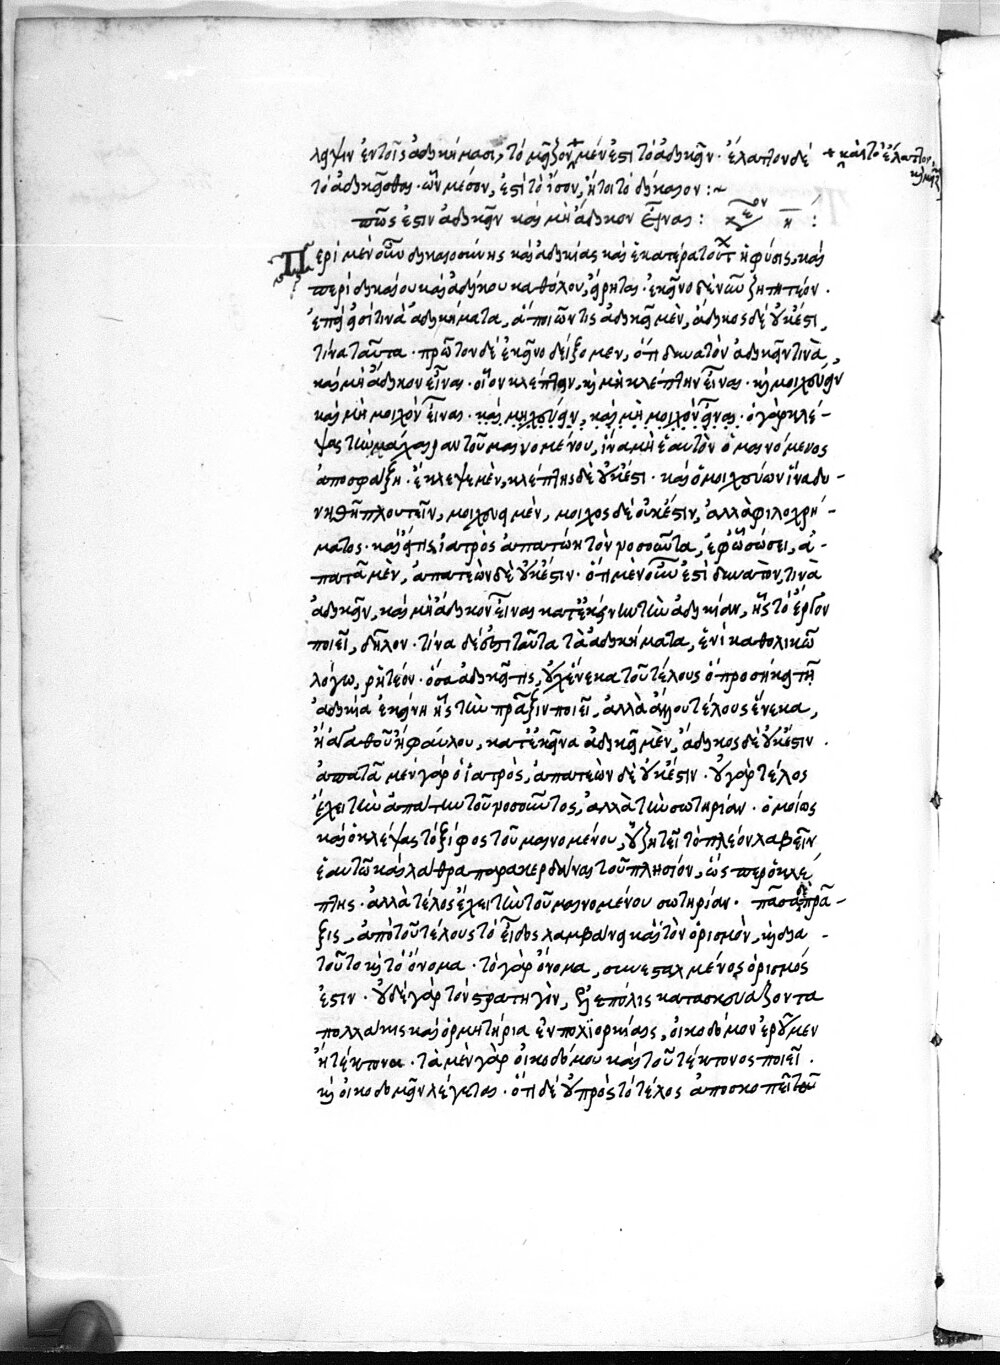 λειψιν ἐν τοῖς ἀδικήμασι, τὸ μεῖζον μέν ἐστι τὸ ἀδικεῖν· ἔλαττον δὲ
+ καὶ τὸ ἔλαττον,
τὸ ἀδικεῖσθαι· ὧν μέσον, ἐστὶ τὸ ἴσον, ἤτοι τὸ δίκαιον :~
πῶς ἔστιν ἀδικεῖν καὶ μὴ ἄδικον εἶναι : κεον η :
Περὶ μὲν οὖν δικαιοσύνης καὶ ἀδικίας καὶ ἑκατέρα τούτων ἡ φύσις, καὶ
περὶ δικαίου καὶ ἀδίκου καθόλου, εἴρηται· ἐκεῖνο δὲ νῦν ζητητέον·
ἐπεί ἐστί τινα ἀδικήματα, ἃ ποιῶν τις ἀδικεῖ μὲν, ἄδικος δὲ οὐκ ἔστι,
τίνα ταῦτα· πρῶτον δὲ ἐκεῖνο δείξομεν, ὅτι δυνατὸν ἀδικεῖν τινὰ,
καὶ μὴ ἄδικον εἶναι· οἷον κλέπτειν, καὶ μὴ κλέπτην εἶναι· καὶ μοιχεύειν
καὶ μὴ μοιχὸν εἶναι· καὶ μηχεύειν, καὶ μὴ μοιχὸν εἶναι· ὁ γὰρ κλέ-
ψας τὴν μάχαιραν τοῦ μαινομένου, ἵνα μὴ ἑαυτὸν ὁ μαινόμενος
ἀποσφάξῃ· ἔκλεψε μὲν, κλέπτης δὲ οὐκ ἔστι· καὶ ὁ μοιχεύων ἵνα δυ-
νηθῇ πλουτεῖν, μοιχεύει μὲν, μοιχὸς δὲ οὐκ ἔστιν, ἀλλὰ φιλοχρή-
ματος· καὶ εἴ τις ἰατρὸς ἀπατώη τὸν νοσοῦντα, ἐφ' ᾧ σώσει, ἀ-
πατᾶ μὲν, ἀπατεὼν δὲ οὐκ ἔστιν· ὅτι μὲν οὖν ἐστὶ δυνατὸν, τινὰ
ἀδικεῖν, καὶ μὴ ἄδικον εἶναι κατ' ἐκείνην τὴν ἀδικίαν, ἧς τὸ ἔργον
ποιεῖ, δῆλον· τίνα δέ ἐστι ταῦτα τὰ ἀδικήματα, ἑνὶ καθολικῷ
λόγω, ῥητέον· ὅσα ἀδικεῖ τις, οὐχ ἕνεκα τοῦ τέλους ὃ προσήκει τῇ
ἀδικία ἐκείνη ἧς τὴν πρᾶξιν ποιεῖ, ἀλλὰ ἄλλου τέλους ἕνεκα,
ἢ ἀγαθοῦ ἢ φαύλου, κατ' ἐκεῖνα ἀδικεῖ μὲν, ἄδικος δὲ οὐκ ἔστιν·
ἀπατᾶ μὲν γὰρ ὁ ἰατρὸς, ἀπατεὼν δὲ οὐκ ἔστιν· οὐ γὰρ τέλος
ἔχει τὴν ἀπάτην τοῦ νοσοῦντος, ἀλλὰ τὴν σωτηρίαν· ὁμοίως
καὶ ὁ κλέψας τὸ ξίφος τοῦ μαινομένου, οὐ ζητεῖ τὸ πλέον λαβεῖν
ἑαυτῷ καὶ λάθρα παρακερδᾶναι τοῦ πλησίον, ὥς περ ὁ κλέ
πτης· ἀλλὰ τέλος ἔχει τὴν τοῦ μαινομένου σωτηρίαν· πᾶσα δὲ πρᾶ-
ξις, ἀπὸ τοῦ τέλους τὸ εἶδος λαμβάνει καὶ τὸν ὁρισμὸν, καὶ δια-
τοῦτο καὶ τὸ ὄνομα· τὸ γὰρ ὄνομα, συνεσταλμένος ὁρισμός
ἐστιν· οὐδὲ γὰρ τὸν στρατηγὸν, ἑλεπόλεις κατασκευάζοντα
πολλάκις καὶ ὁρμητήρια ἐν πολιορκίαις, οἰκοδόμον ἐροῦμεν
ἢ τέκτονα· τὰ μὲν γὰρ οἰκοδόμου καὶ τοῦ τέκτονος ποιεῖ·
καὶ οἰκοδομεῖν λέγεται· ὅτι δὲ οὐ πρὸς τὸ τέλος ἀποσκοπεῖ τοῦ